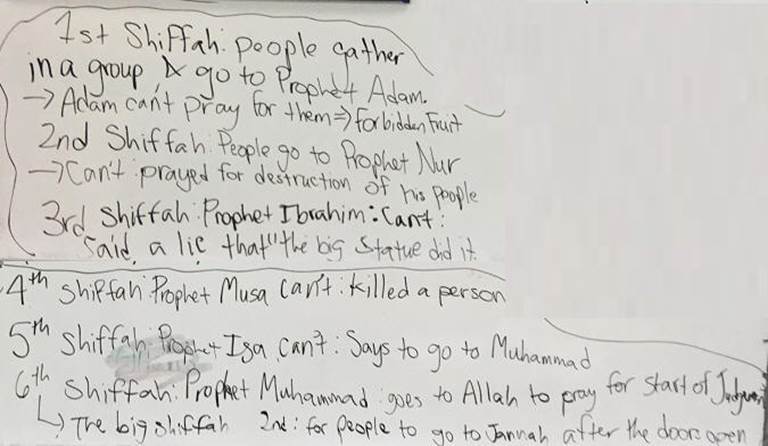 1st Shiffah: people gather
in a group & go to Prophet Adam.
→ Adam can't pray for them ⇒ forbidden Fruit
2nd Shiffah: People go to Prophet Nur
→ Can't prayed for destruction of his people
3rd Shiffah: Prophet Ibrahim: Can't:
Said a lie that "the big Statue did it.
4th Shiffah: Prophet Musa can't: killed a person
5th Shiffah: Prophet Isa can't: Says to go to Muhammad
6th Shiffah: Prophet Muhammad goes to Allah to pray for start of
↳ The big Shiffah 2nd: for people to go to Jannah after the door open